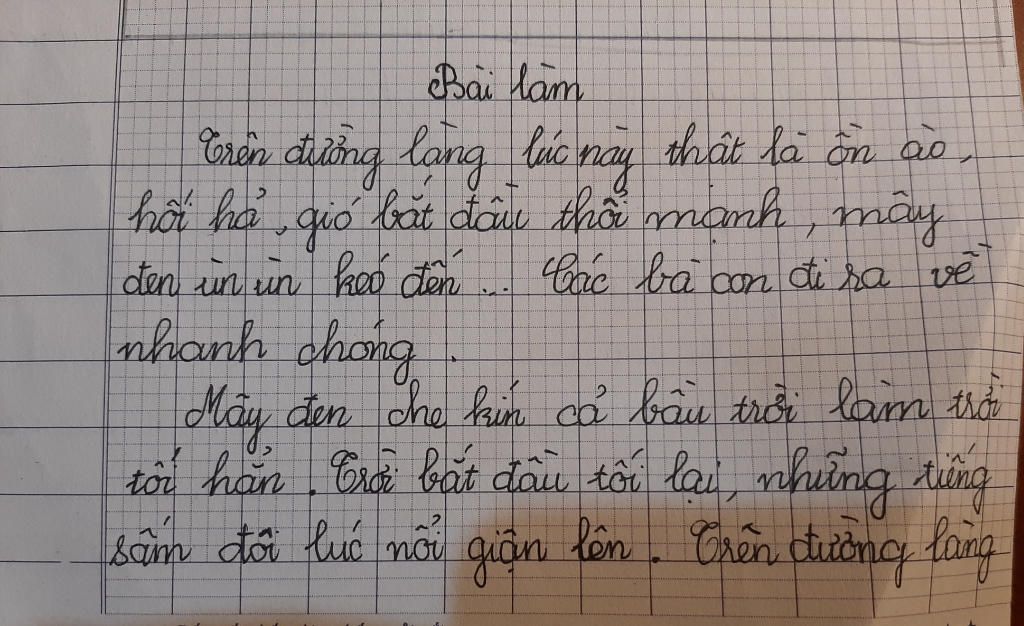 Bài làm
Trên đường làng lúc này thật là ồn ào,
hối hả, gió bắt đầu thổi mạnh, mây
đen ùn ùn kéo đến... Các bà con đi ra về
nhanh chóng.
Mây đen che kín cả bầu trời làm trời
tối hẳn. Trời bắt đầu tối lại, những tiếng
sấm đôi lúc nổi giận lên. Trên đường làng